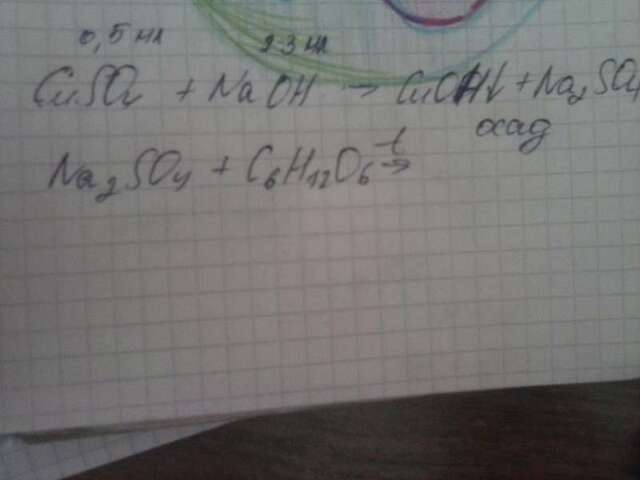 0,5 мл 2 3 мл
CuSO4 + NaOH → CuOH↓ + Na2SO4
осад
Na2SO4 + C6H12O6 t→